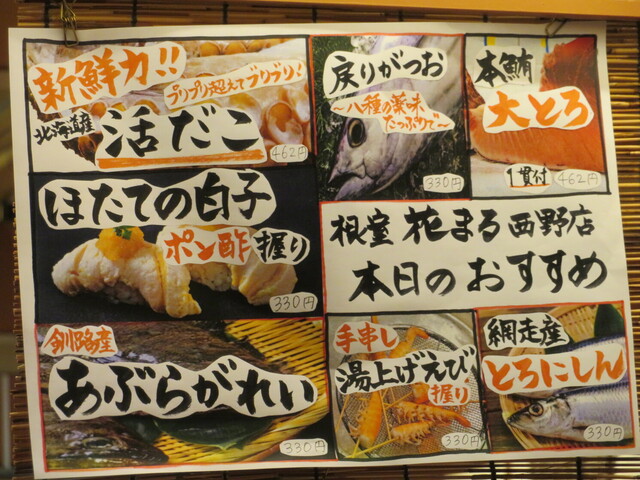 新鮮力!!
プリプリ超えてブリブリ!
北海道産
活だこ
462円
戻りがつお
~八種の薬味
たっぷりで~
330円
本鮪
大とろ
1貫付
462円
ほたての白子
ポン酢 握り
330円
根室 花まる 西野店
本日のおすすめ
釧路産
あぶらがれい
330円
手串し
湯上げえび
握り
330円
網走産
とろにしん
330円